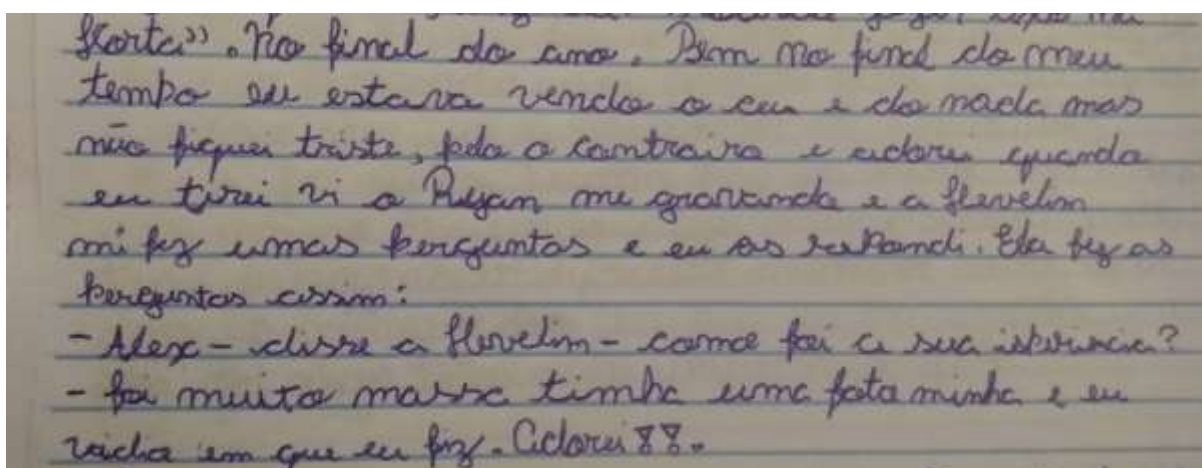 porta». No final do ano. Bem no final do meu
tempo eu estava vendo o ceu e do nada mas
não fiquei triste, pelo o contrairo e adorei quando
eu tirei vi o Ryan me gravando e a Hevelim
mi fez umas perguntas e eu as respondi. Ela fez as
perguntas assim:
- Alex - disse a Hevelim - como foi a sua
- foi muito massa tinha uma foto minha e eu
em que eu fiz. Adorei